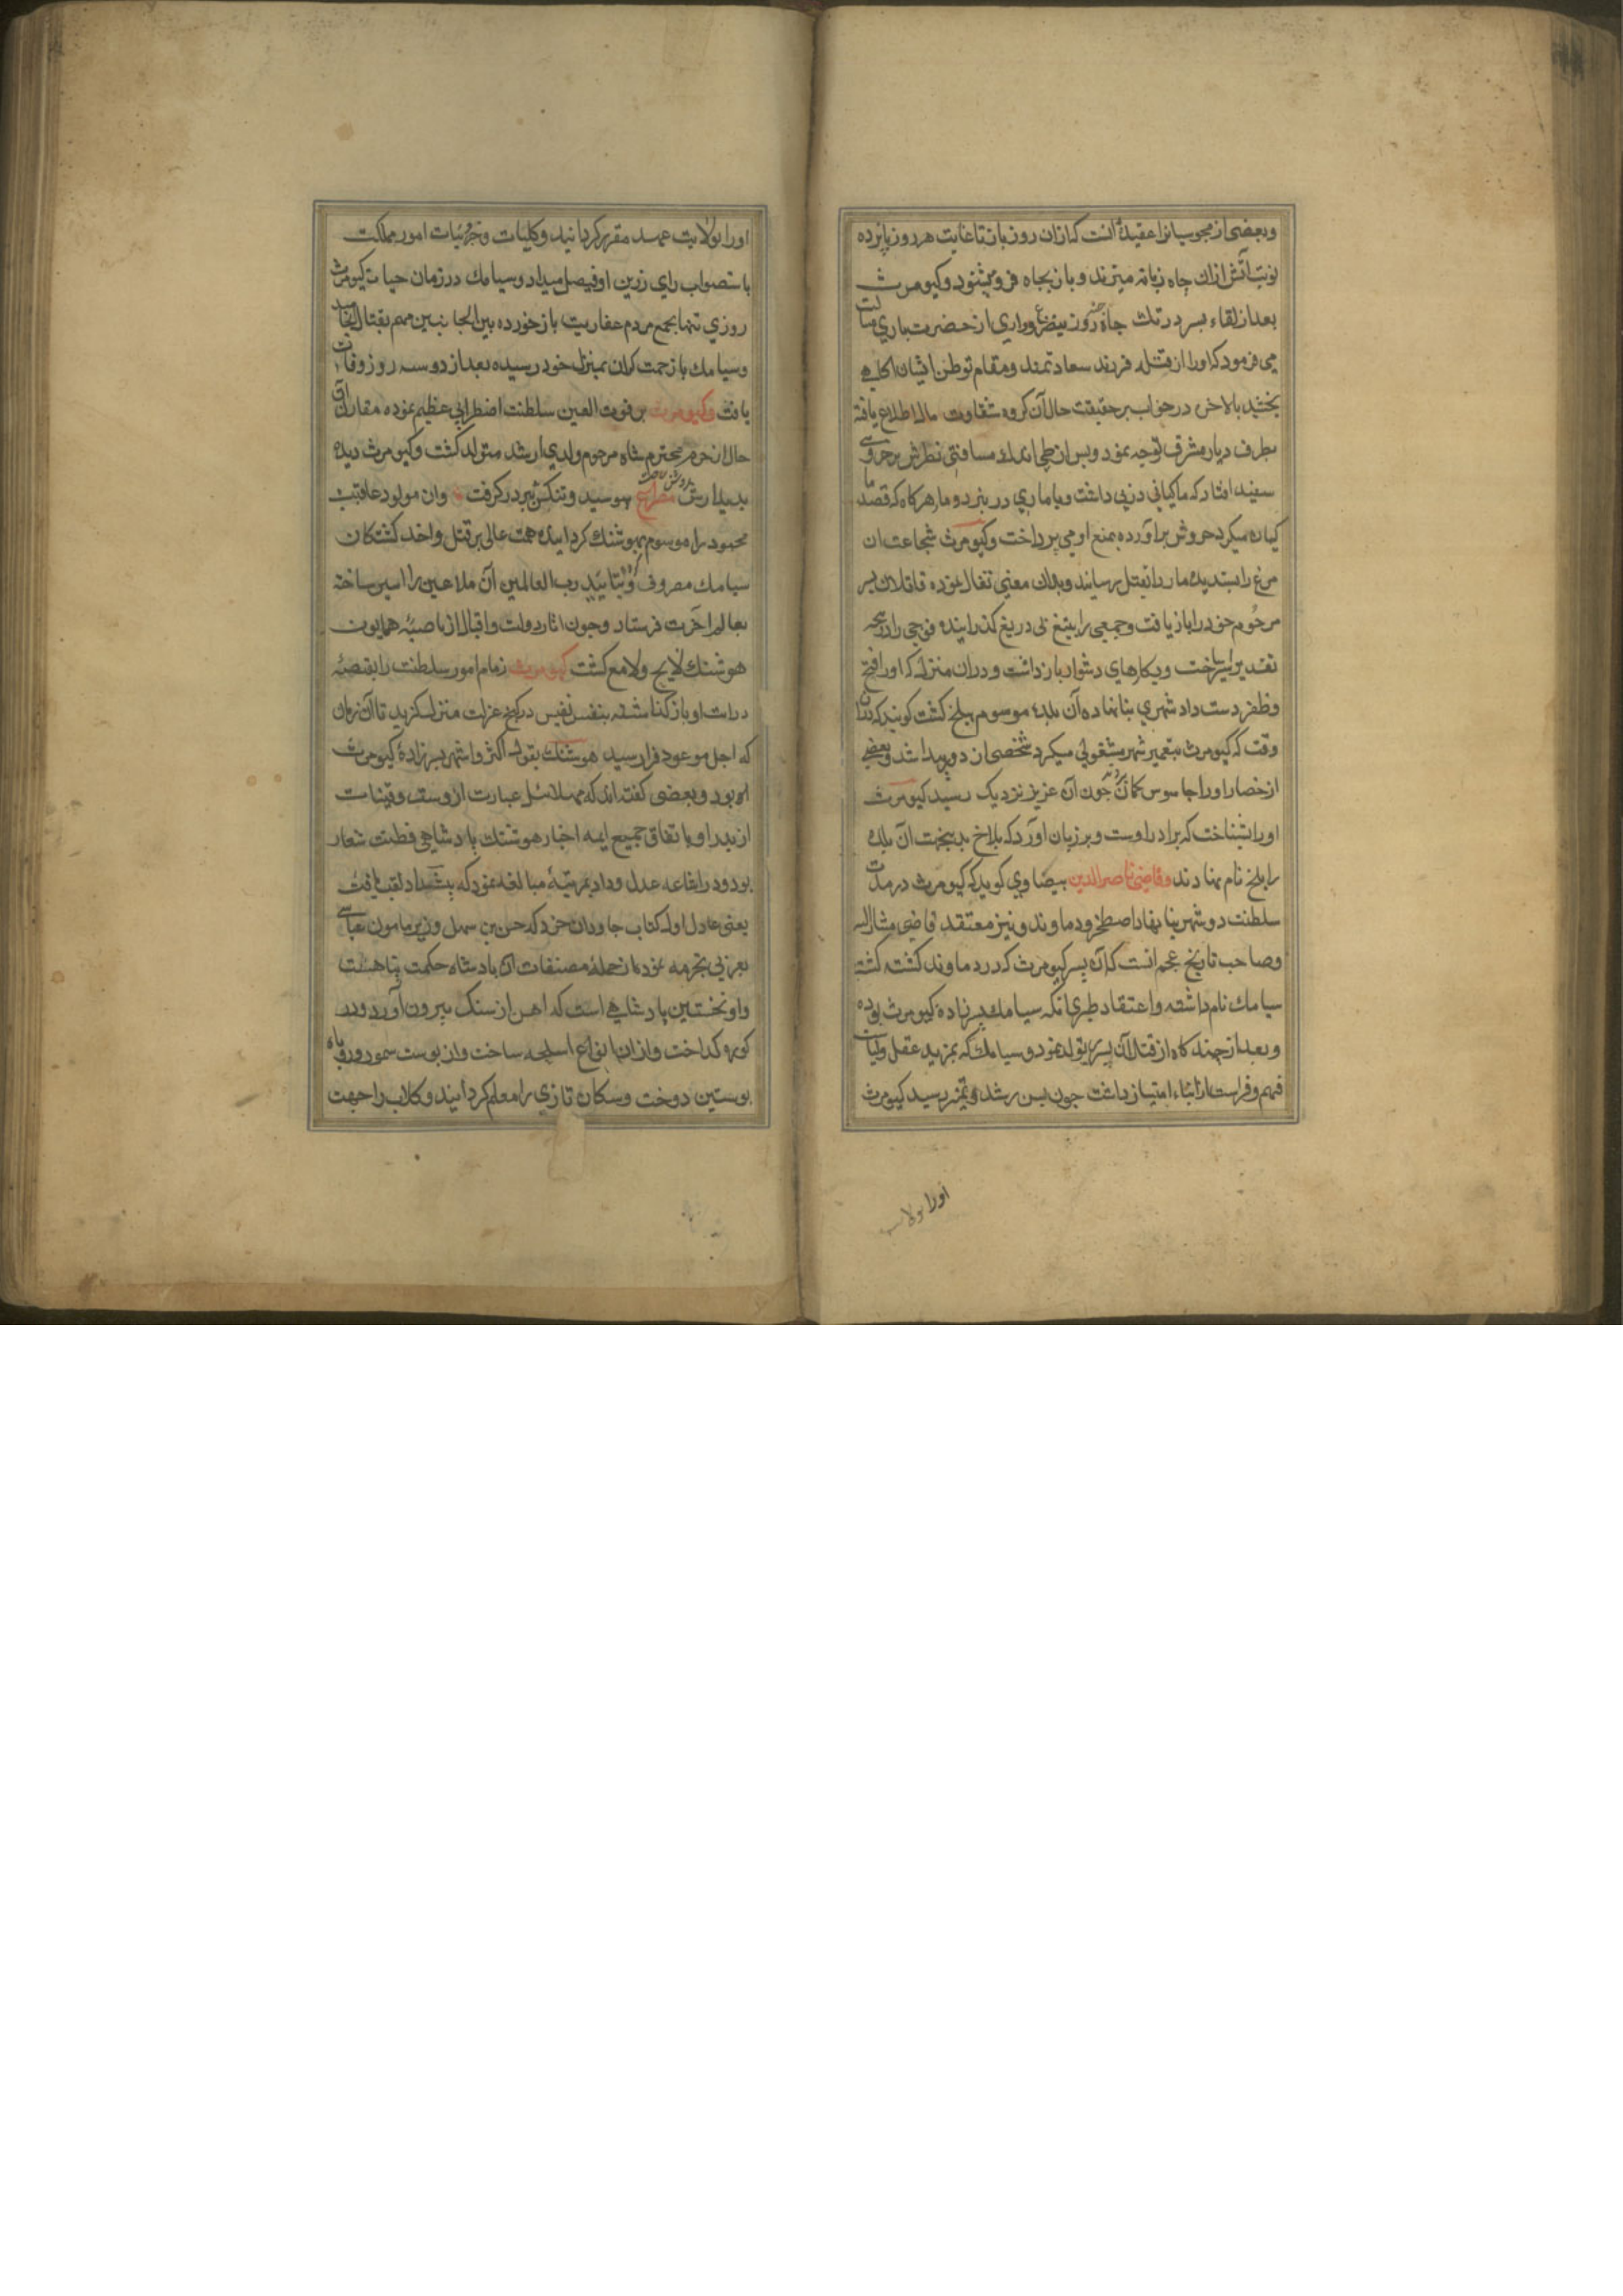 وبعضی از مجوسیانرا عقیده آنست که ازان روز باز تا غایت هر روز پانزده
نوبت آتش ازان چاه زبانه میزند و باز بچاه فرو میشود وکیومرث
بعد از القاء پسر در تک چاه روز بتضرع وزاری از حضرت باری مسالت
می فرمود که اورا از قتله فرزند سعادتمند ومقام توطن ایشان اکاهی
بخشید بالاخر در خواب بر حقیقت حال آن کروه شقاوت مال اطلاع یافته
بطرف دیار مشرق توجه نمود وپس از طی اندک مسافتی نظرش بر خروسی
سفید افتاد که ماکیانی در پی داشت وبا ماری در نبرد و مار هرکاه که قصد
ماکیان میکرد خروش براورده بمنع او می پرداخت وکیومرث شجاعت ان
مرغ را پسندیده مار را بقتل رسانید وبدان معنی تفال نموده قاتلان پسر
مرحوم خود را باز یافت وجمعی را بتیغ بی دریغ کذرانیده فوجی را در پنجه
تقدیر اسیر ساخت وبکارهای دشوار بازداشت ودران منزل که اورا فتح
وظفر دست داد شهری بنا نهاده آن بلده موسوم ببلخ کشت کویند که دران
وقت که کیومرث بتعمیر شهر مشغولی میکرد شخصی از دور پیدا شد وبعضی
از حضار اورا جاسوس کمان بردند چون آن عزیز نزدیک رسید کیومرث
اورا بشناخت که برادر اوست وبر زبان آورد که بلاخ بدینجهت آن بلده
را بلخ نام نهادند وقاضی ناصرالدین بیضاوی کوید که کیومرث در مدت
سلطنت دو شهر بنا نهاد اصطخر و دماوند ونیز معتقد قاضی مشارالیه
وصاحب تاریخ عجم انست که آن پسر کیومرث که در دماوند کشته کشت
سیامک نام داشته واعتقاد طبری انکه سیامک پسرزاده کیومرث بوده
وبعد از چند کاه از قتل آن پسر تولد نمود وسیامک که بمزید عقل وکیاست
فهم وفراست از ابناء امتیاز داشت چون بسن رشد وتمیز رسید کیومرث
اورا بولایت
اورا بولایت عهد مقرر کردانید وکلیات وجزئیات امور مملکت
باستصواب رای زرین او فیصل میداد وسیامک در زمان حیات کیومرث
روزی تنها بجمع مردم عفاریت باز خورده بین الجانبین مهم بقتال انجامید
وسیامک با زحمت کران بمنزل خود رسیده بعد از دو سه روز وفات
یافت وکیومرث بر فوت العین سلطنت اضطرابی عظیم نموده مقارن
حال از حرم محترم شاه مرحوم ولدی ارشد متولد کشت وکیومرث دیده
بدیدارش مصراع ببوسید وتنکش ببر در کرفت وان مولود عاقبت
محمود را موسوم بهوشنک کردانیده همت عالی بر قتل واخذ کشندکان
سیامک مصروف کرد وبتایید رب العالمین آن ملاعین را اسیر ساخته
بعالم آخرت فرستاد وچون اثار دولت واقبال از ناصیه همایون
هوشنک لایح ولامع کشت کیومرث زمام امور سلطنت را بقبضه
درایت او باز کذاشته بنفس نفیس در کنج عزلت منزل کزید تا آن زمان
که اجل موعود فرا رسید هوشنک بقول اکثر واشهر پسرزاده کیومرث
بود وبعضی کفته اند که مهلائیل عبارت ازوست وقینان
از پدر او باتفاق جمیع ایمه اخبار هوشنک پادشاهی فطنت شعار
بود ودر اشاعه عدل وداد بمرتبه مبالغه نمود که پیشداد لقب یافت
یعنی عادل اول کتاب جاودان خرد که حسن بن سهل وزیر مامون عباسی
بعربی ترجمه نموده از جمله مصنفات ان پادشاه حکمت پناهست
واو نخستین پادشاهی است که اهن از سنک بیرون آورد ودر
کوره کداخت وازان انواع اسلحه ساخت واز پوست سمور وروباه
پوستین دوخت وسکان تازی را معلم کردانید وکلاب را جهت